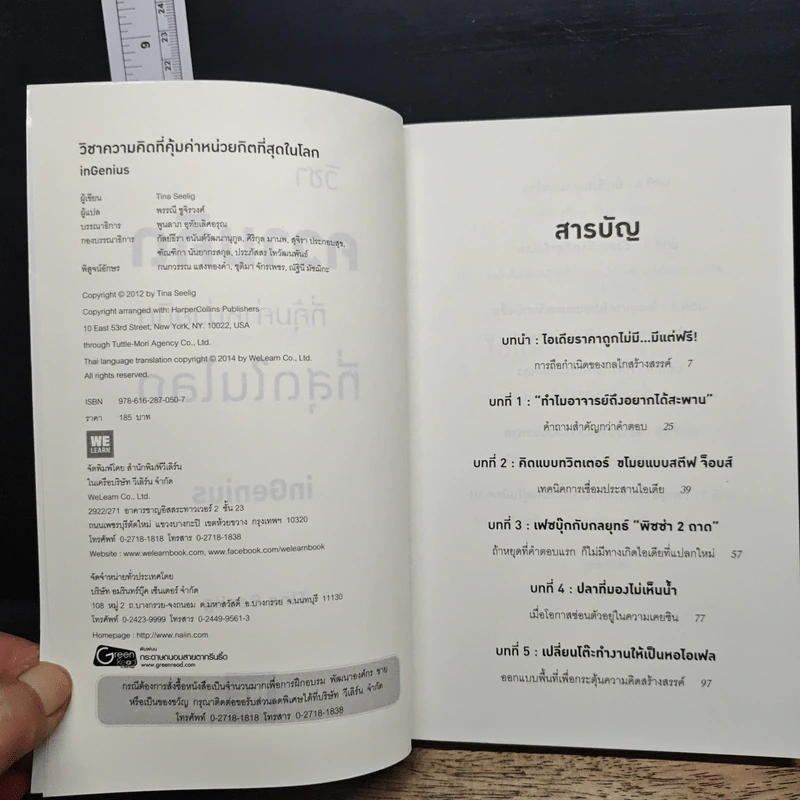 9
24
23
22
วิชาความคิดที่คุ้มค่าหน่วยกิตที่สุดในโลก
inGenius
ผู้เขียน Tina Seelig
ผู้แปล พรรณี ชูจิรวงศ์
บรรณาธิการ พูนลาภ อุทัยเลิศอรุณ
กองบรรณาธิการ กัลย์ธีรา อนันต์วัฒนานุกูล, ศิริกุล มานพ, สุจิรา ประกอบสุข,
ทัณฑิกา นันยากรสกุล, ประภัสสร โทวัฒนพันธ์
พิสูจน์อักษร กนกวรรณ แสงทองคำ, ชุติมา จักรเพชร, ณัฐินี มัชฌิกะ
Copyright © 2012 by Tina Seelig
Copyright arranged with: HarperCollins Publishers
10 East 53rd Street, New York, NY. 10022, USA
through Tuttle-Mori Agency Co., Ltd.
Thai language translation copyright © 2014 by WeLearn Co., Ltd.
All rights reserved.
ISBN 978-616-287-050-7
ราคา 185 บาท
WE
LEARN
จัดพิมพ์โดย สำนักพิมพ์วีเลิร์น
ในเครือบริษัท วีเลิร์น จำกัด
WeLearn Co., Ltd.
2922/271 อาคารชาญอิสสระทาวเวอร์ 2 ชั้น 23
ถนนเพชรบุรีตัดใหม่ แขวงบางกะปิ เขตห้วยขวาง กรุงเทพฯ 10320
โทรศัพท์ 0-2718-1818 โทรสาร 0-2718-1838
Website : www.welearnbook.com, www.facebook.com/welearnbook
จัดจำหน่ายทั่วประเทศโดย
บริษัท อมรินทร์บุ๊ค เซ็นเตอร์ จำกัด
108 หมู่ 2 ถ.บางกรวย-จงถนอม ต.มหาสวัสดิ์ อ.บางกรวย จ.นนทบุรี 11130
โทรศัพท์ 0-2423-9999 โทรสาร 0-2449-9561-3
Homepage : http://www.naiin.com
Green
Read
พิมพ์บน
กระดาษถนอมสายตากรีนรี้ด
www.greenread.com
กรณีต้องการสั่งซื้อหนังสือเป็นจำนวนมากเพื่อการฝึกอบรม พัฒนาองค์กร ขาย
หรือเป็นของขวัญ กรุณาติดต่อขอรับส่วนลดพิเศษได้ที่บริษัท วีเลิร์น จำกัด
โทรศัพท์ 0-2718-1818 โทรสาร 0-2718-1838
สารบัญ
บทนำ : ไอเดียราคาถูกไม่มี...มีแต่ฟรี!
การถือกำเนิดของกลไกสร้างสรรค์ 7
บทที่ 1 : "ทำไมอาจารย์ถึงอยากได้สะพาน"
คำถามสำคัญกว่าคำตอบ 25
บทที่ 2 : คิดแบบทวิตเตอร์ ขโมยแบบสตีฟ จ็อบส์
เทคนิคการเชื่อมประสานไอเดีย 39
บทที่ 3 : เฟซบุ๊กกับกลยุทธ์ "พิซซ่า 2 ถาด"
ถ้าหยุดที่คำตอบแรก ก็ไม่มีทางเกิดไอเดียที่แปลกใหม่ 57
บทที่ 4 : ปลาที่มองไม่เห็นน้ำ
เมื่อโอกาสซ่อนตัวอยู่ในความเคยชิน 77
บทที่ 5 : เปลี่ยนโต๊ะทำงานให้เป็นหอไอเฟล
ออกแบบพื้นที่เพื่อกระตุ้นความคิดสร้างสรรค์ 97